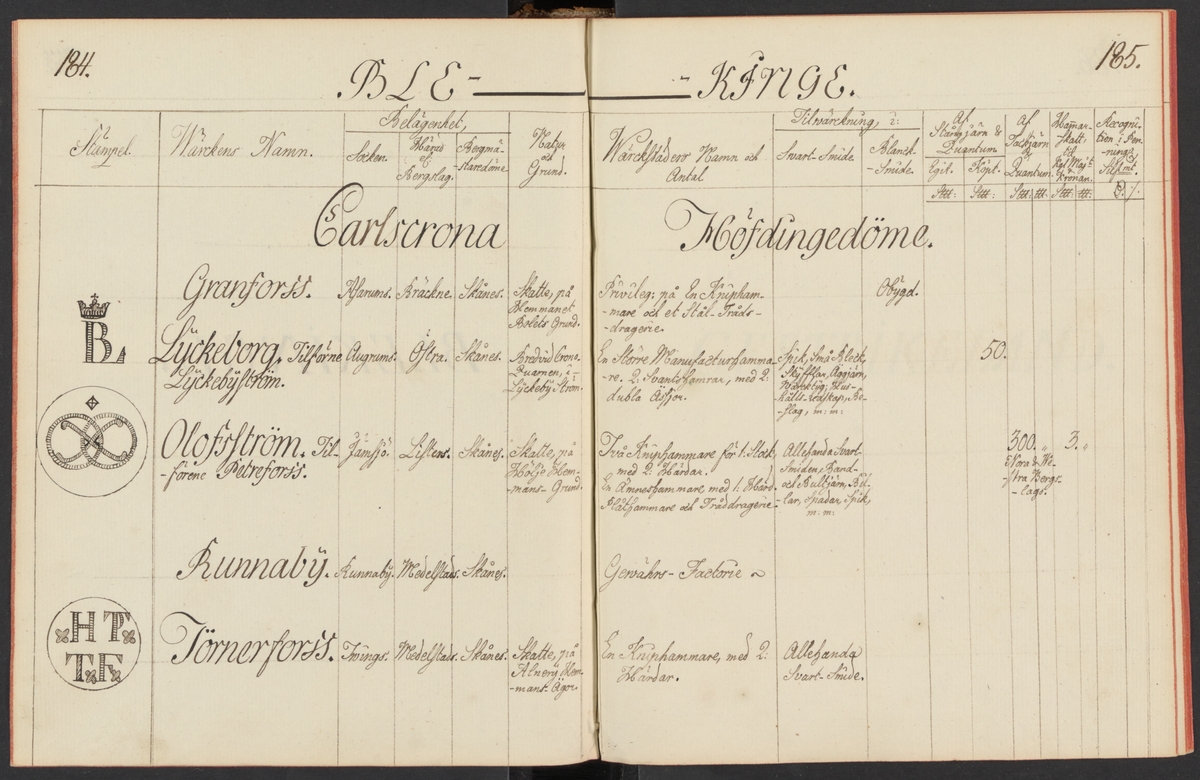 184.
185.
BLE-
-KINGE.
Stämpel.
Wärckens Namn.
Belägenhet,
Socken.
Härad
el:
Bergslag.
Bergmä-
staredöme
Natur
och
Grund.
Wärckstäders Namn och
Antal
Tilwärckning, i:
Svart-Smide.
Blanck-
-Smide.
Af
Stångjärn &
Quantum
Egit.
Köpt.
Af
Tackjärn
Quantum.
Hamar-
skatt
til
Kgl Maj:t
Kronan.
Recogni-
tion i Pen-
ningar
Silf:mt.
Carlscrona
Höfdingedöme.
Granforss.
Asarums.
Bräckne.
Skånes.
Skatte, på
Hemmanet
Bolets Grund.
Privileg: på En Knipham-
-mare och et Stål-Tråds-
-dragerie.
Obygd.
BL
Lyckeborg. Tilförne
Lyckebyström.
Augrums.
Östra.
Skånes.
Bredvid Crono-
Quarnen, i
Lyckeby Ström
En Större Manufacturhamma-
-re. 2. Svantshamrar, med 2.
dubla Ässjor.
Spik, Små Bleck,
Skyfflar, Äggjärn,
Wärcktyg, Hus-
hålls-redskap, Be-
-slag, m: m:
50.
Olofsström. Til-
-förene Petreforss.
Jämsjö.
Listers.
Skånes.
Skatte, på
Holje Hem-
mans-Grund.
Två Kniphammare för 1. Stock,
med 2. Härdar.
En Ämneshammare med 1. Härd
Plåthammare och Tråddragerie
Allehanda Svart-
Smiden, Band-
och Bultjärn, Bil-
lar, Spadar, Spik,
m: m:
300. „ 3. „
Nora & We-
-stra Bergs-
-lags.
Runnaby.
Runnaby.
Medelstads.
Skånes.
Gewährs-Factorie ~
HT
TF
Törnerforss.
Twings.
Medelstads.
Skånes.
Skatte, på
Alneryd Hem-
-mans Ägor.
En Kniphammare, med 2.
Härdar.
Allehanda
Svart-Smide.